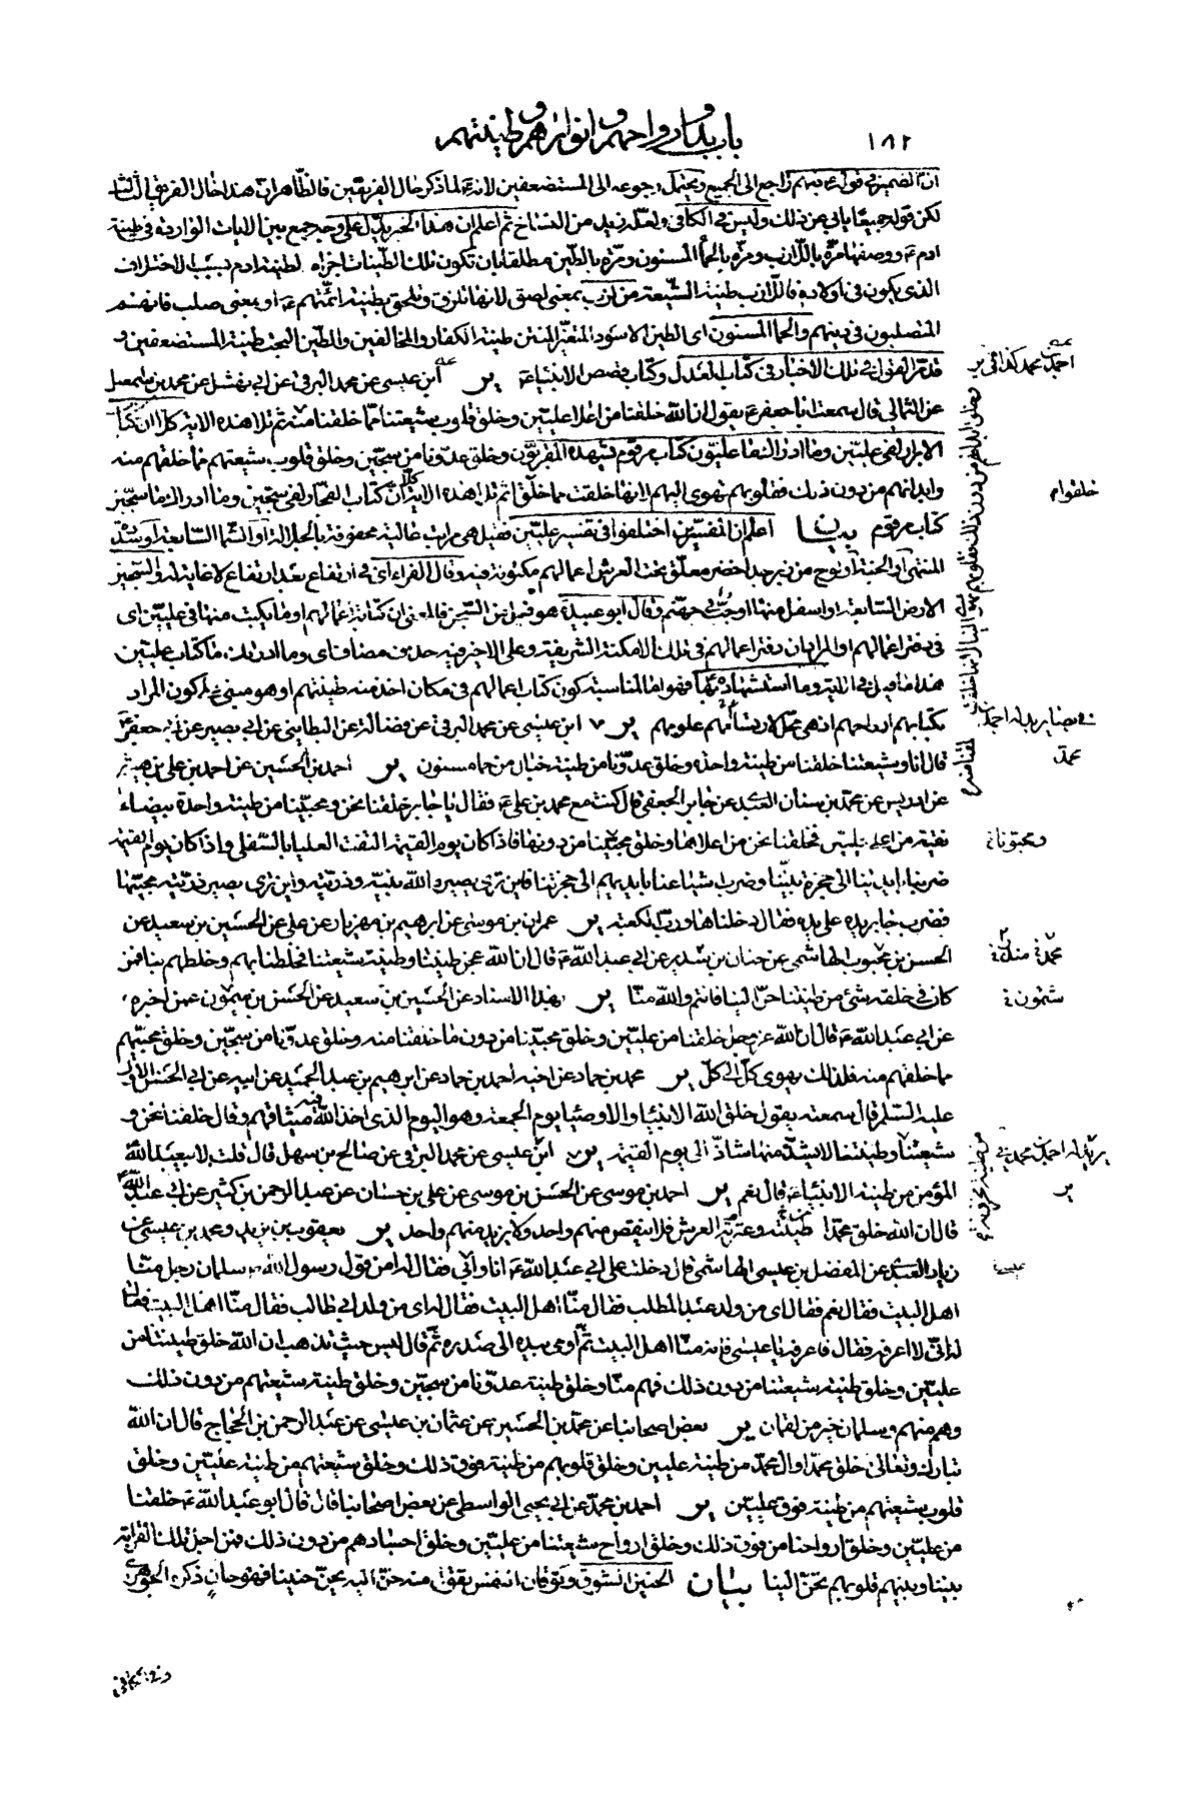 ١٨٢
باب بدو ارواحهم و انوارهم و طينتهم
ان الضمير في قوله ع فيهم راجع الى الجميع ويحتمل رجوعه الى المستضعفين لانه ع لما ذكر حال الفريقين فالظاهر ان هذا حال الفريق الثالث
لكن قوله جميعا يابى عن ذلك وليس في الكافي ولعله زيد من النساخ ثم اعلم ان هذا الخبر يدل على وجه جمع بين الايات الواردة في طينة
ادم ع ووصفها مرة باللازب ومرة بالحمأ المسنون ومرة بالطين مطلقا بان تكون تلك الطينات اجزاء لطينة ادم بسبب الاختلاف
الذي يكون في اولاده فاللازب طينة الشيعة من لزب بمعنى لصق لانها تلزق وتلحق بطينة ائمتهم ع او بمعنى صلب فانهم
المتصلبون في دينهم والحمأ المسنون اي الطين الاسود المتغير المنتن طينة الكفار والمخالفين والطين البحت طينة المستضعفين و
قد مر القول في تلك الاخبار في كتاب العدل وكتاب قصص الانبياء ع ير ابن عيسى عن محمد البرقي عن ابي نهشل عن محمد بن اسمعيل
عن الثمالي قال سمعت ابا جعفر ع يقول ان الله خلقنا من اعلا عليين وخلق قلوب شيعتنا مما خلقنا منه ثم تلا هذه الاية كلا ان كتاب
الابرار لفي عليين وما ادراك ما عليون كتاب مرقوم يشهده المقربون وخلق عدونا من سجين وخلق قلوب شيعتهم مما خلقهم منه
وابدانهم من دون ذلك فقلوبهم تهوي اليهم لانها خلقت مما خلق ثم تلا هذه الاية كلا ان كتاب الفجار لفي سجين وما ادراك ما سجين
كتاب مرقوم بيان اعلم ان المفسرين اختلفوا في تفسير عليين فقيل هي مراتب عالية محفوفة بالجلالة او السماء السابعة او سدرة
المنتهى او الجنة او لوح من زبرجد اخضر معلق تحت العرش اعمالهم مكتوبة فيه وقال الفراء اي في ارتفاع بعد ارتفاع لا غاية له والسجين
الارض السابعة او اسفل منها او جب في جهنم وقال ابو عبيدة هو فعيل من السجن فالمعنى ان كتابة اعمالهم او ما يكتب منها في عليين اي
في دفتر اعمالهم او المراد ان دفتر اعمالهم في تلك الامكنة الشريفة وعلى الاخير فيه حذف مضاف اي وما ادراك ما كتاب عليين
هذا ما قيل في الاية وما استشهاده ع بها فهو اما لمناسبة كون كتاب اعمالهم في مكان اخذ منه طينتهم او هو مبني على كون المراد
بكتابهم ارواحهم اذ هي محل لارتسام علومهم ير ابن عيسى عن محمد البرقي عن فضالة عن البطايني عن ابي بصير عن ابي جعفر ع
قال انا وشيعتنا خلقنا من طينة واحدة وخلق عدونا من طينة خبال من حمأ مسنون ير احمد بن الحسين عن احمد بن علي بن هيثم
عن ادريس عن محمد بن سنان العبدي عن جابر الجعفي قال كنت مع محمد بن علي ع فقال يا جابر خلقنا نحن ومحبينا من طينة واحدة بيضاء
نقية من اعلى عليين فخلقنا نحن من اعلاها وخلق محبينا من دونها فاذا كان يوم القيمة التفت العليا بالسفلى واذا كان يوم القيمة
ضربنا بايدينا الى حجزة نبينا وضرب اشياعنا بايديهم الى حجزتنا فاين ترى يصير الله نبيه وذريته واين ترى يصير ذريته محبيها
فضرب جابر يده على يده فقال دخلناها ورب الكعبة ير عمران بن موسى عن ابرهيم بن مهزيار عن علي عن الحسين بن سعيد عن
الحسن بن محبوب الهاشمي عن حنان بن سدير عن ابي عبد الله ع قال ان الله عجن طينتنا وطينة شيعتنا فخلطنا بهم وخلطهم بنا فمن
كان في خلقه شئ من طينتنا حن الينا فانتم والله منا ير بهذا الاسناد عن الحسين بن سعيد عن الحسن بن ميمون عمن اخبره
عن ابي عبد الله ع قال ان الله عز وجل خلقنا من عليين وخلق محبينا من دون ما خلقنا منه وخلق عدونا من سجين وخلق محبيهم
مما خلقهم منه فلذلك يهوى كل الى كل ير محمد بن حماد عن اخيه احمد بن حماد عن ابرهيم بن عبد الحميد عن ابيه عن ابي الحسن الاول
عليه السلم قال سمعته يقول خلق الله الانبياء والاوصياء يوم الجمعة وهو اليوم الذي اخذ الله فيه ميثاقهم وقال خلقنا نحن و
شيعتنا وطينتنا لا يشذ منها شاذ الى يوم القيمة ير ابن عيسى عن محمد البرقي عن صالح بن سهل قال قلت لابي عبد الله ع
المؤمن من طينة الانبياء ع قال نعم ير احمد بن موسى عن الحسن بن موسى عن علي بن حسان عن عبد الرحمن بن كثير عن ابي عبد الله ع
قال ان الله خلق محمدا طينته وعترته العرش فلا ينقص منهم واحد ولا يزيد منهم واحد ير يعقوب بن يزيد ومحمد بن عيسى عن
زياد العبدي عن المفضل بن عيسى الهاشمي قال دخلت على ابي عبد الله ع انا وابي فقال له امن قول رسول الله ص سلمان رجل منا
اهل البيت فقال نعم فقال اي من ولد عبد المطلب فقال منا اهل البيت فقال له اي من ولد ابي طالب فقال منا اهل البيت فقال
له اني لا اعرفه فقال فاعرفه يا عيسى فانه منا اهل البيت ثم اومى بيده الى صدره ثم قال ليس حيث تذهب ان الله خلق طينتنا من
عليين وخلق طينة شيعتنا من دون ذلك فهم منا وخلق طينة عدونا من سجين وخلق طينة شيعتهم من دون ذلك
وهم منهم وسلمان خير من لقمان ير بعض اصحابنا عن محمد بن الحسين عن عثمان بن عيسى عن عبد الرحمن بن الحجاج قال ان الله
تبارك وتعالى خلق محمدا وال محمد من طينة عليين وخلق قلوبهم من طينة فوق ذلك وخلق شيعتهم من طينة عليين وخلق
قلوب شيعتهم من طينة فوق عليين ير احمد بن محمد عن ابي يحيى الواسطي عن بعض اصحابنا قال قال ابو عبد الله ع خلقنا
من عليين وخلق ارواحنا من فوق ذلك وخلق ارواح شيعتنا من عليين وخلق اجسادهم من دون ذلك فمن اجل تلك القرابة
بيننا وبينهم قلوبهم تحن الينا بيان الحنين الشوق وتوقان النفس يقول منه حن اليه يحن حنينا فهو حان ذكره الجوهري
احمد بن محمد كذا في ير
خلقوا منه
في بصاير يد له احمد بن
محمد
ومحبونا
شمون